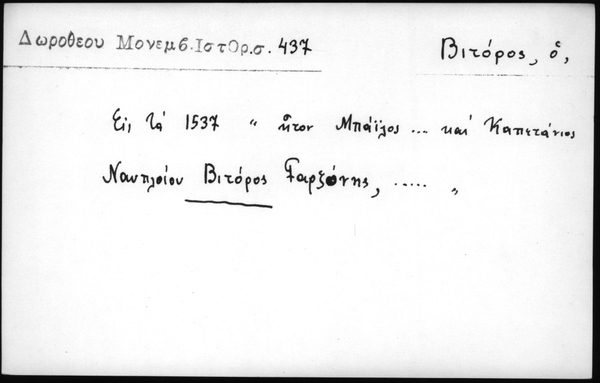 Δωροθεου Μονεμβ. Ιστορ.σ. 437
Βιτόρος, ὁ,
Εἰς τὰ 1537 " ἦτον Μπάϊλος ... καὶ Καπετάνιος
Ναυπλοίου Βιτόρος Γαρζόνης, ..... "